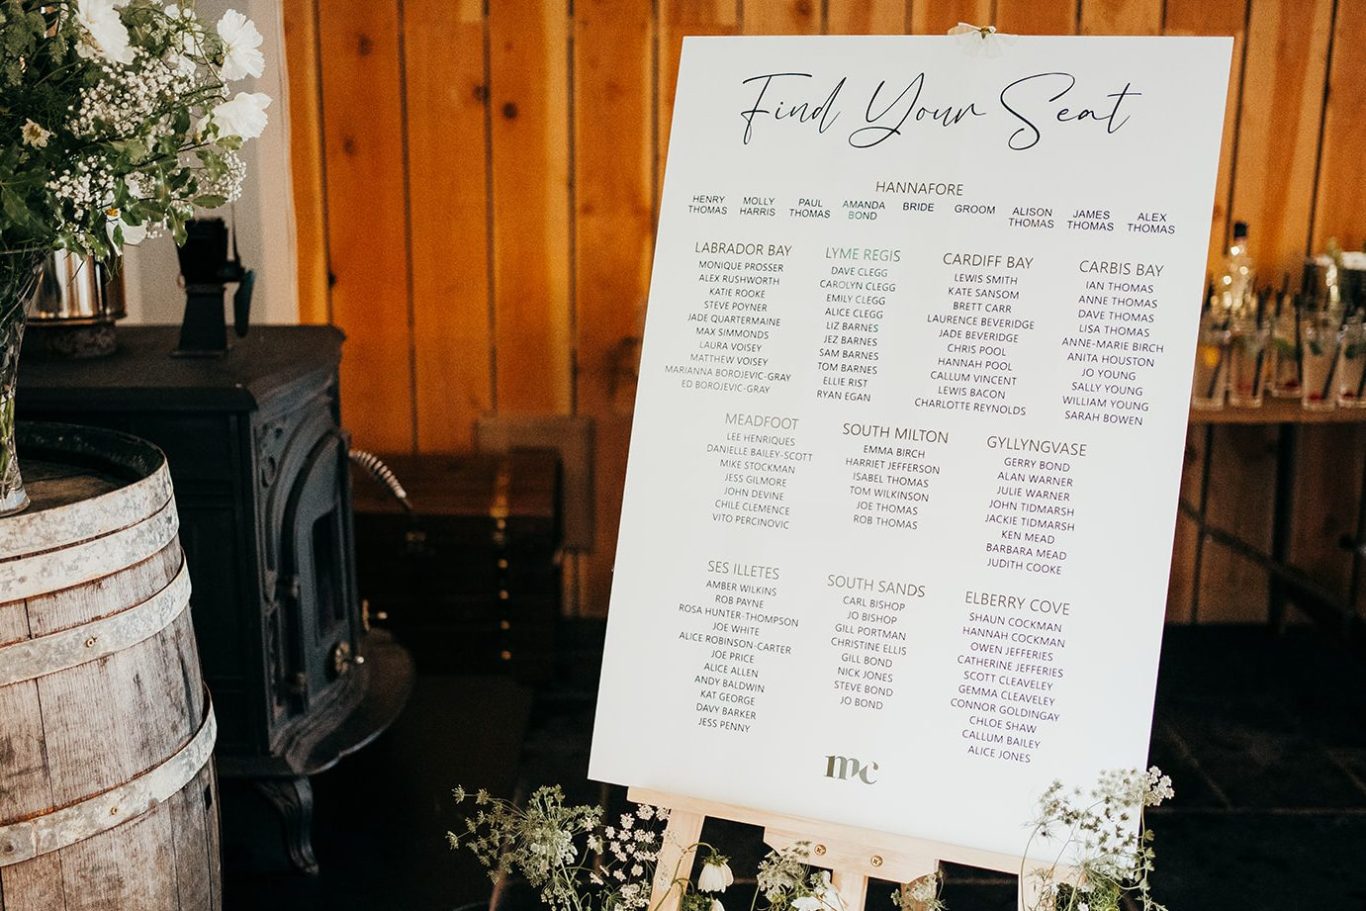 Find Your Seat
HANNAFORE
HENRY THOMAS
MOLLY HARRIS
PAUL THOMAS
AMANDA BOND
BRIDE
GROOM
ALISON THOMAS
JAMES THOMAS
ALEX THOMAS
LABRADOR BAY
MONIQUE PROSSER
ALEX RUSHWORTH
KATIE ROOKE
STEVE POYNER
JADE QUARTERMAINE
MAX SIMMONDS
LAURA VOISEY
MATTHEW VOISEY
MARIANNA BOROJEVIC-GRAY
ED BOROJEVIC-GRAY
LYME REGIS
DAVE CLEGG
CAROLYN CLEGG
EMILY CLEGG
ALICE CLEGG
LIZ BARNES
JEZ BARNES
SAM BARNES
TOM BARNES
ELLIE RIST
RYAN EGAN
CARDIFF BAY
LEWIS SMITH
KATE SANSOM
BRETT CARR
LAURENCE BEVERIDGE
JADE BEVERIDGE
CHRIS POOL
HANNAH POOL
CALLUM VINCENT
LEWIS BACON
CHARLOTTE REYNOLDS
CARBIS BAY
IAN THOMAS
ANNE THOMAS
DAVE THOMAS
LISA THOMAS
ANNE-MARIE BIRCH
ANITA HOUSTON
JO YOUNG
SALLY YOUNG
WILLIAM YOUNG
SARAH BOWEN
MEADFOOT
LEE HENRIQUES
DANIELLE BAILEY-SCOTT
MIKE STOCKMAN
JESS GILMORE
JOHN DEVINE
CHILE CLEMENCE
VITO PERCINOVIC
SOUTH MILTON
EMMA BIRCH
HARRIET JEFFERSON
ISABEL THOMAS
TOM WILKINSON
JOE THOMAS
ROB THOMAS
GYLLYNGVASE
GERRY BOND
ALAN WARNER
JULIE WARNER
JOHN TIDMARSH
JACKIE TIDMARSH
KEN MEAD
BARBARA MEAD
JUDITH COOKE
SES ILLETES
AMBER WILKINS
ROB PAYNE
ROSA HUNTER-THOMPSON
JOE WHITE
ALICE ROBINSON-CARTER
JOE PRICE
ALICE ALLEN
ANDY BALDWIN
KAT GEORGE
DAVY BARKER
JESS PENNY
SOUTH SANDS
CARL BISHOP
JO BISHOP
GILL PORTMAN
CHRISTINE ELLIS
GILL BOND
NICK JONES
STEVE BOND
JO BOND
ELBERRY COVE
SHAUN COCKMAN
HANNAH COCKMAN
OWEN JEFFERIES
CATHERINE JEFFERIES
SCOTT CLEAVELEY
GEMMA CLEAVELEY
CONNOR GOLDINGAY
CHLOE SHAW
CALLUM BAILEY
ALICE JONES
mc